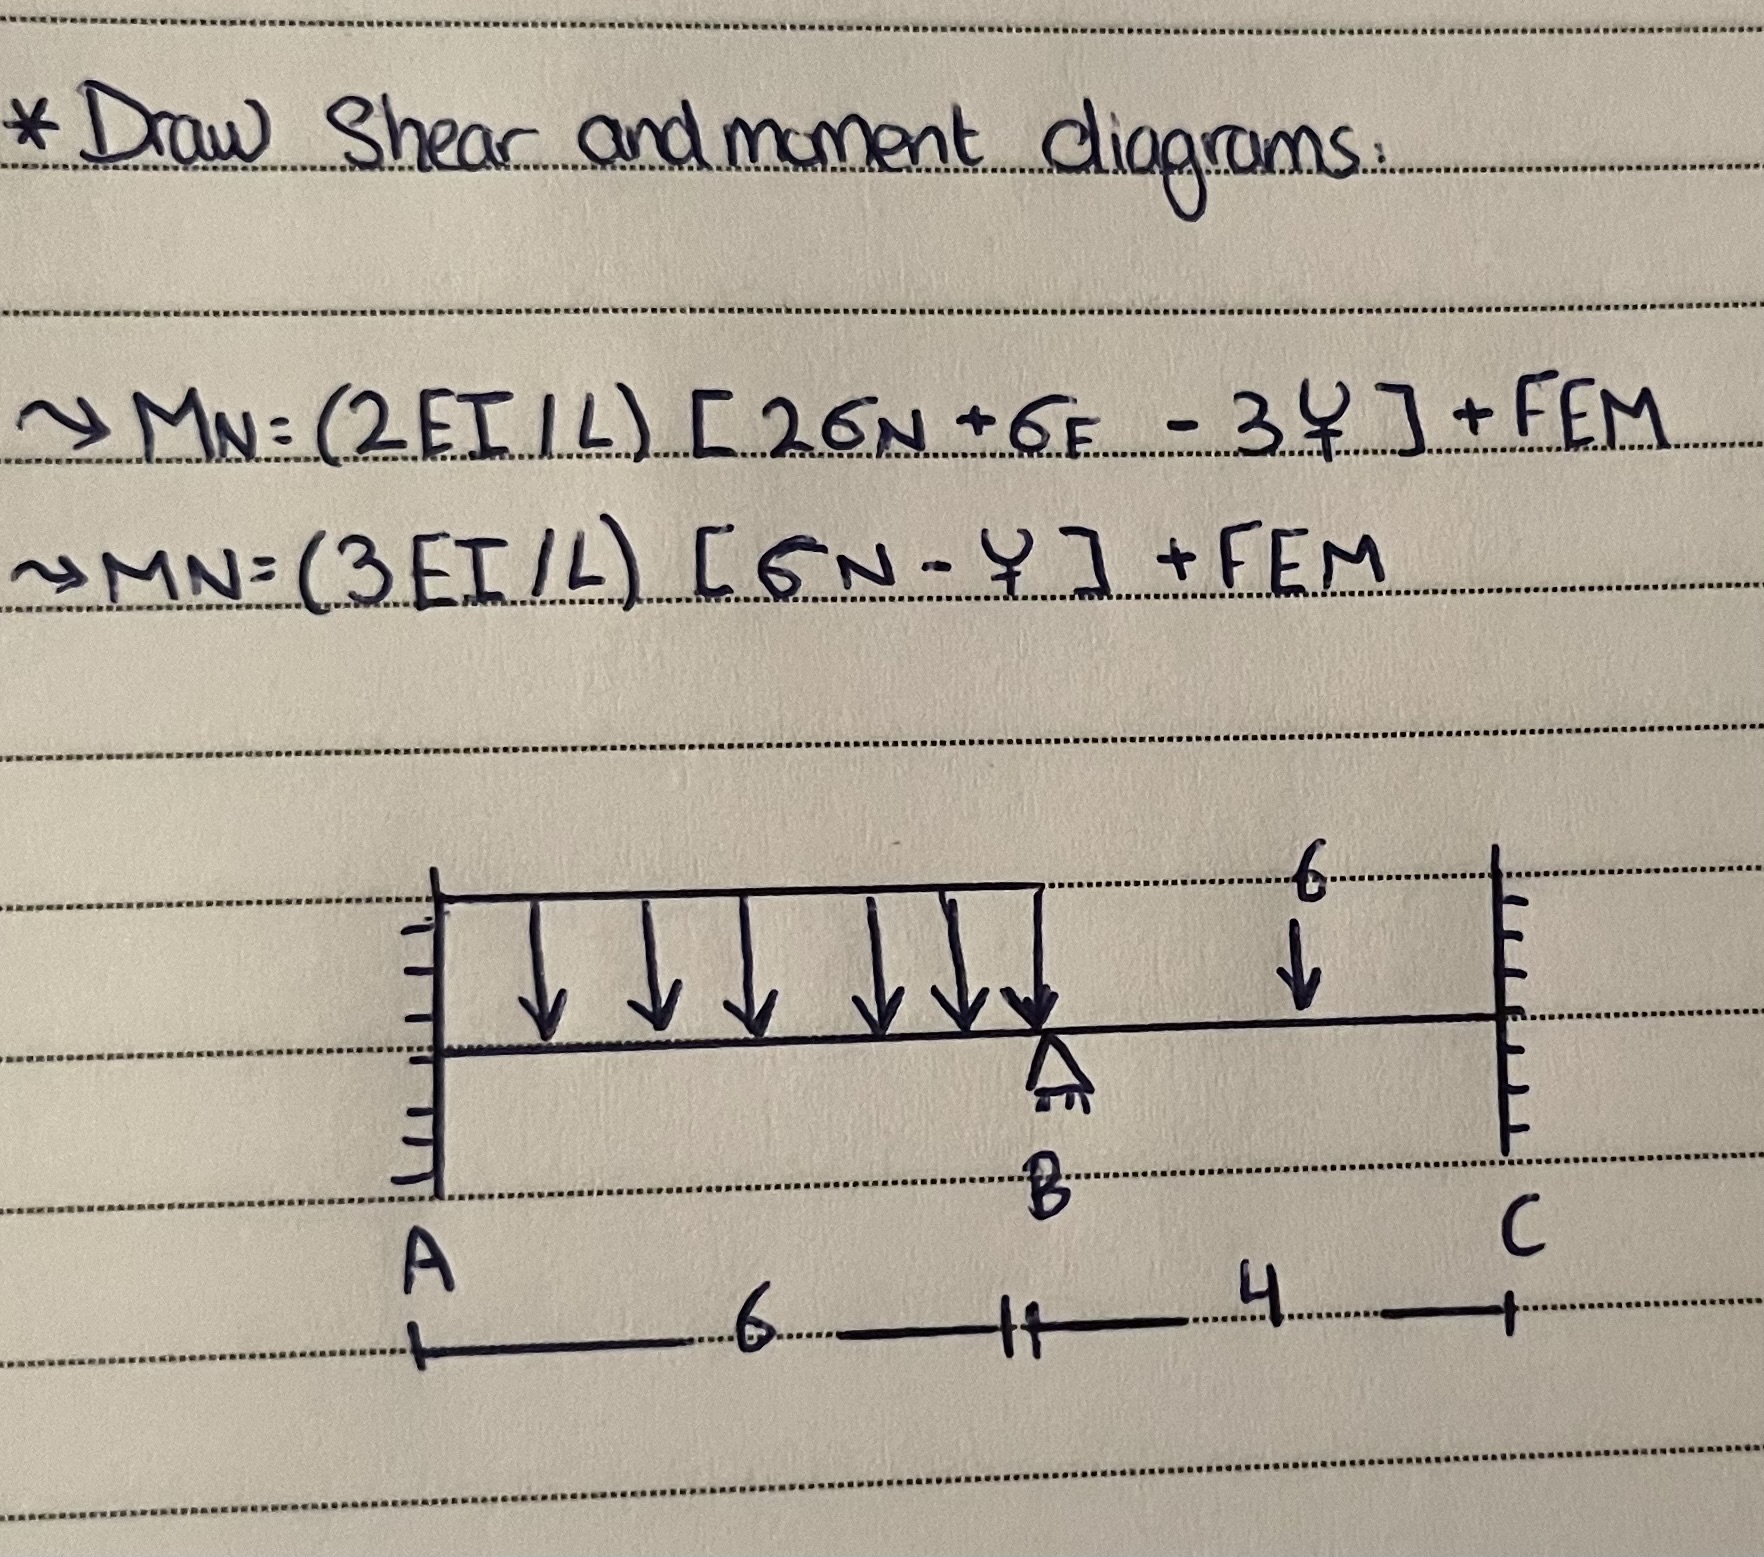 * Draw Shear and moment diagrams:
~> MN = (2EI/L) [2ϬN + ϬF - 3Ұ] + FEM
~> MN = (3EI/L) [ϬN - Ұ] + FEM
6
B
A
C
6
4